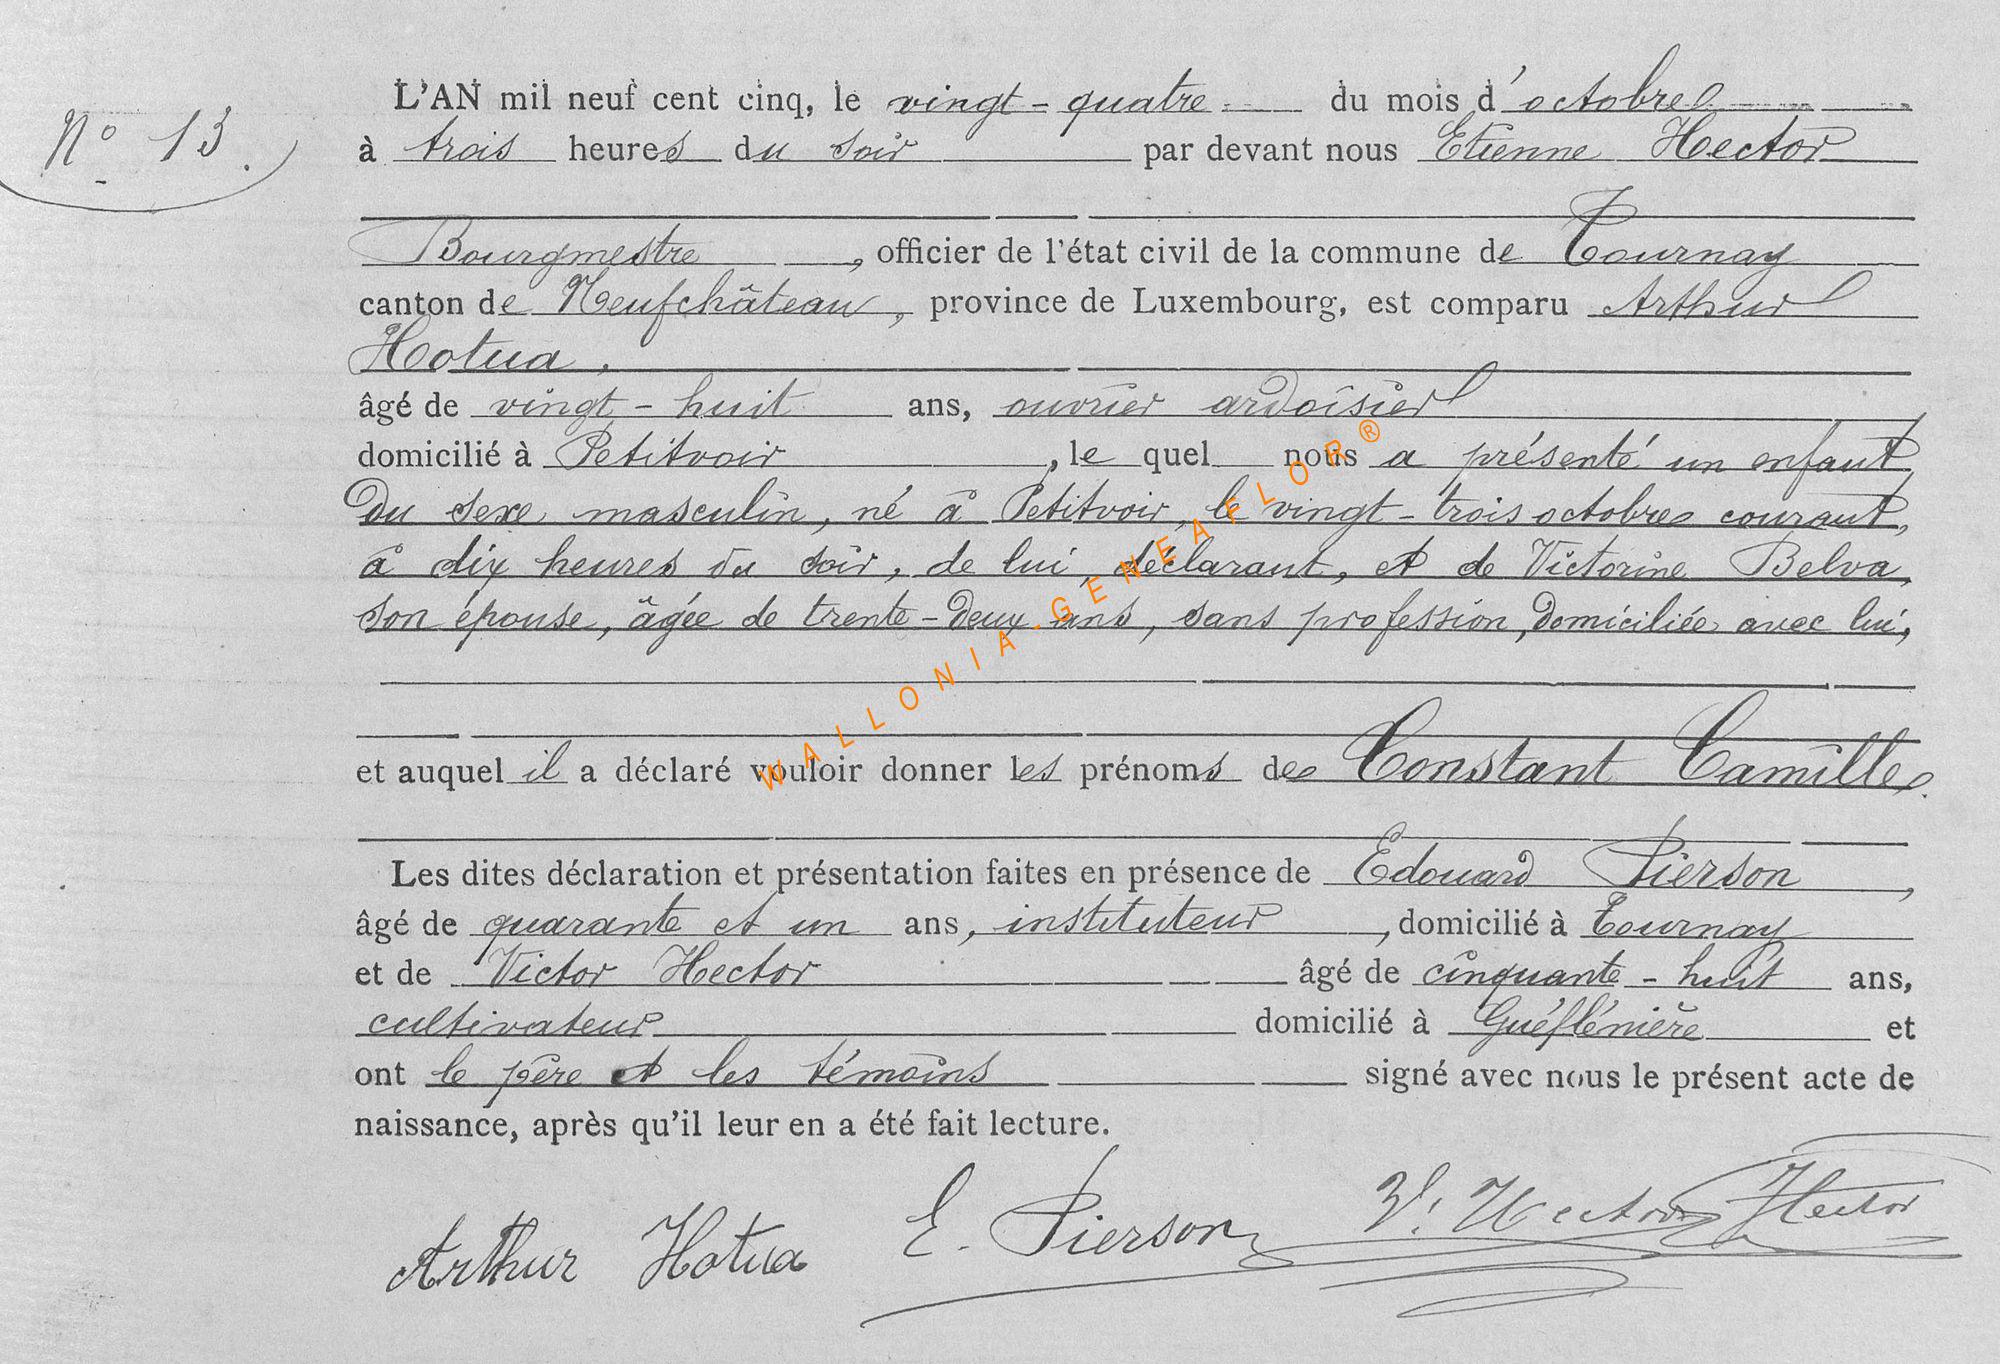 N° 13.
L'AN mil neuf cent cinq, le vingt-quatre du mois d'octobre
à trois heures du soir par devant nous Etienne Hector
Bourgmestre, officier de l'état civil de la commune de Tournay
canton de Neufchâteau, province de Luxembourg, est comparu Arthur
Hotua,
âgé de vingt-huit ans, ouvrier ardoisier
domicilié à Petitvoir, le quel nous a présenté un enfant
du sexe masculin, né à Petitvoir, le vingt-trois octobre courant,
à dix heures du soir, de lui, déclarant, et de Victorine Belva,
son épouse, âgée de trente-deux ans, sans profession, domiciliée avec lui,
et auquel il a déclaré vouloir donner les prénoms de Constant Camille.
Les dites déclaration et présentation faites en présence de Edouard Pierson,
âgé de quarante et un ans, instituteur, domicilié à Tournay
et de Victor Hector âgé de cinquante-huit ans,
cultivateur domicilié à Gué et
ont le père et les témoins signé avec nous le présent acte de
naissance, après qu'il leur en a été fait lecture.
Arthur Hotua E. Pierson V. Hector Hector
WALLONIA-GENEAFLOR®